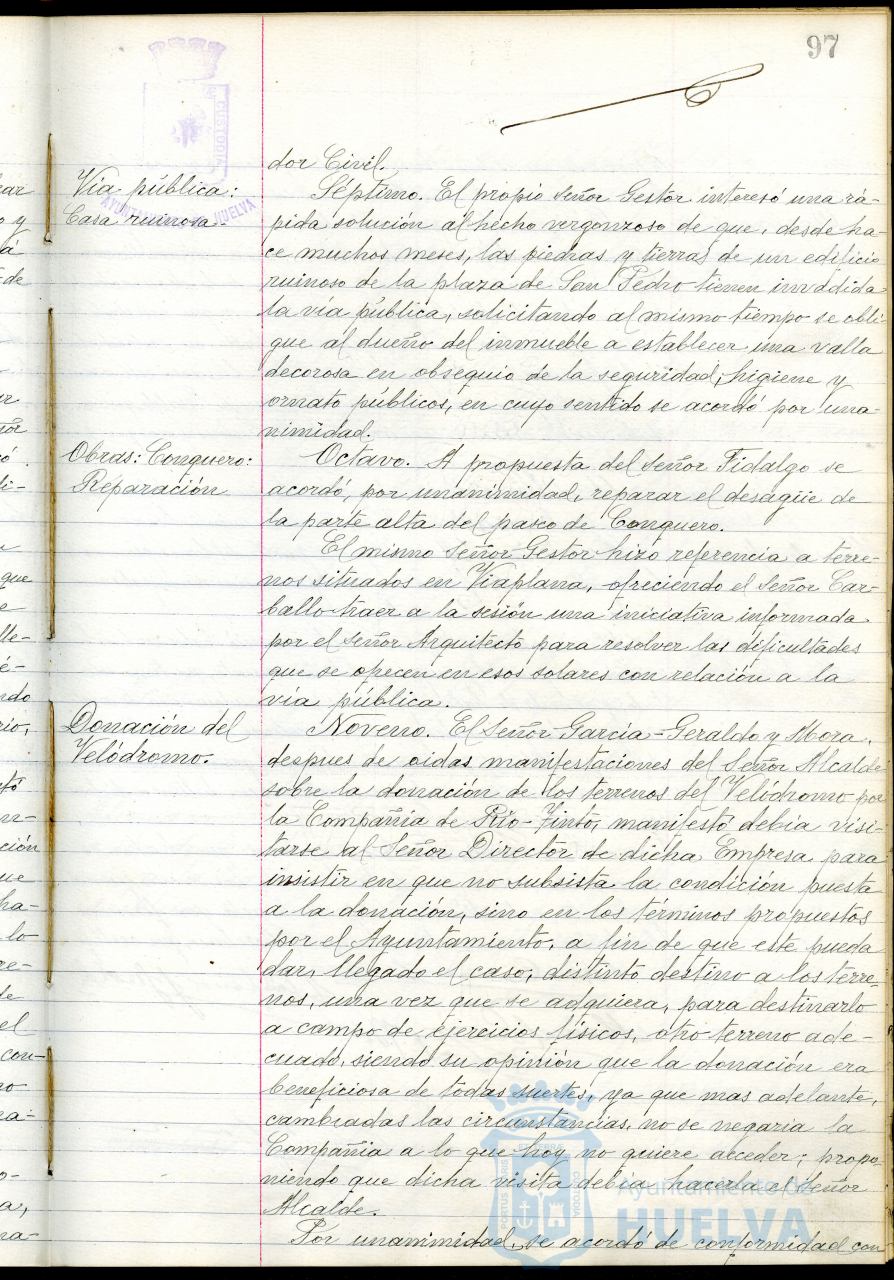 97
dor Civil.
Vía pública:
Casa ruinosa.-
Séptimo. El propio señor Gestor interesó una rá-
pida solución al hecho vergonzoso de que, desde ha-
ce muchos meses, las piedras y tierras de un edificio
ruinoso de la plaza de San Pedro tienen invadida
la vía pública, solicitando al mismo tiempo se obli-
gue al dueño del inmueble a establecer una valla
decorosa en obsequio de la seguridad, higiene y
ornato públicos, en cuyo sentido se acordó por una-
nimidad.
Obras: Conquero:
Reparación
Octavo. A propuesta del señor Fidalgo se
acordó, por unanimidad, reparar el desagüe de
la parte alta del paseo de Conquero.
El mismo señor Gestor hizo referencia a terre-
nos situados en Viaplana, ofreciendo el señor Car-
ballo traer a la sesión una iniciativa informada
por el señor Arquitecto para resolver las dificultades
que se opecen en esos solares con relación a la
vía pública.
Donación del
Velódromo.
Noveno. El Señor García-Geraldo y Mora,
despues de oidas manifestaciones del Señor Alcalde
sobre la donación de los terrenos del Velódromo por
la Compañia de Rio-Tinto, manifestó debía visi-
tarse al Señor Director de dicha Empresa para
insistir en que no subsista la condición puesta
a la donación, sino en los términos propuestos
por el Ayuntamiento, a fin de que este pueda
dar, llegado el caso, distinto destino a los terre-
nos, una vez que se adquiera, para destinarlo
a campo de ejercicios físicos, otro terreno ade-
cuado, siendo su opinión que la donación era
beneficiosa de todas suertes, ya que mas adelante,
cambiadas las circunstancias, no se negaria la
Compañia a lo que hoy no quiere acceder; propo-
niendo que dicha visita debía hacerla el señor
Alcalde.
Por unanimidad, se acordó de conformidad con
AYUNTAMIENTO DE HUELVA
CUSTODIA
PORTUS MARIS ET TERRAE CUSTODIA
Ayuntamiento de
HUELVA